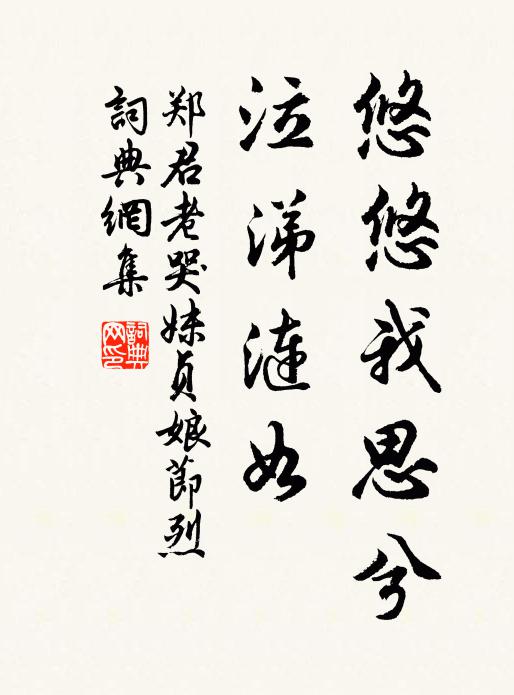 悠悠我思兮
泣涕漣如
郑君老哭妹贞娘節烈
詞典網集
詞典网印